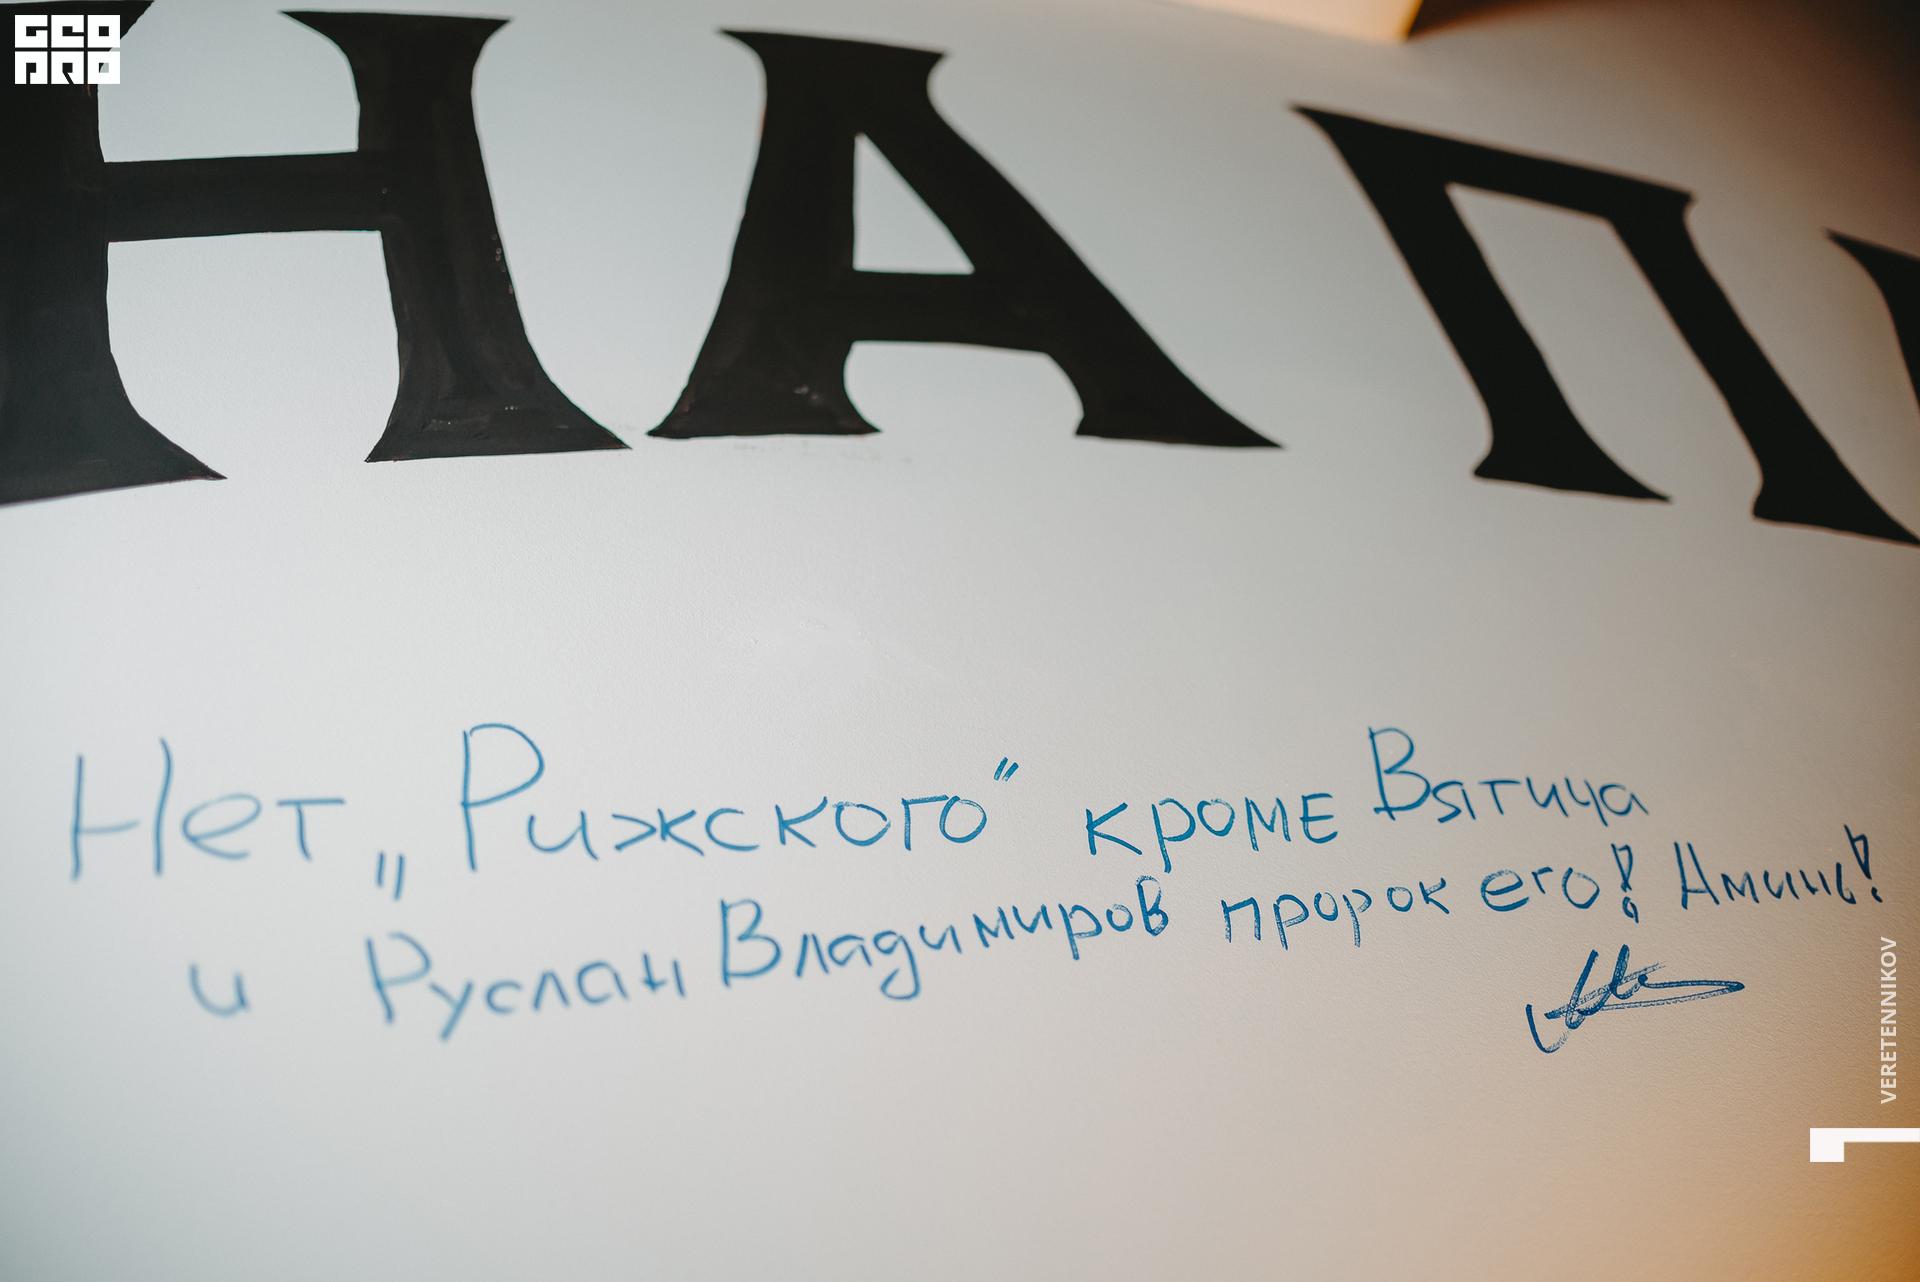 GEO
PRO
НА П
Нет „Рижского" кроме Вятича
и Руслан Владимиров пророк его! Аминь!
VERETENNIKOV